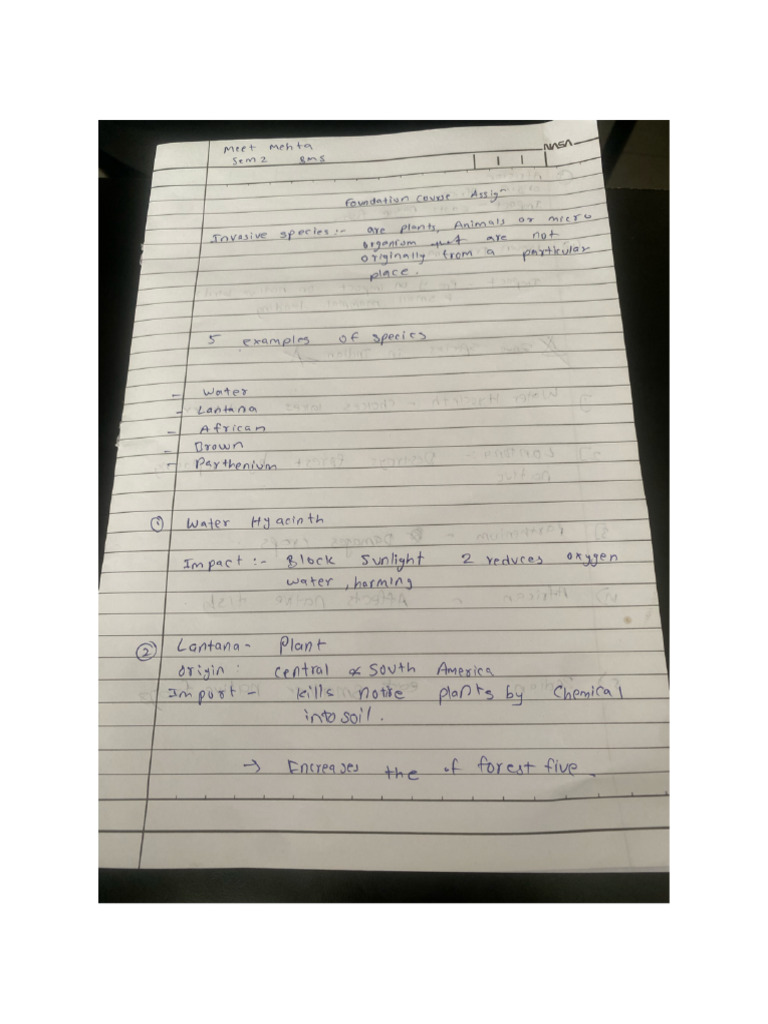 Meet Mehta
Sem 2 BMS
NASA
Foundation Course Assig
Invasive species :- are plants, Animals or micro
organism that are not
originally from a particular
place.
5 examples of species
- Water
- Lantana
- African
- Brown
- Parthenium
① Water Hyacinth
Impact :- Block Sunlight 2 reduces oxygen
water, harming
② Lantana - Plant
Origin : central & South America
Import - kills notie plants by Chemical
into soil.
→ Encreases the of forest five.